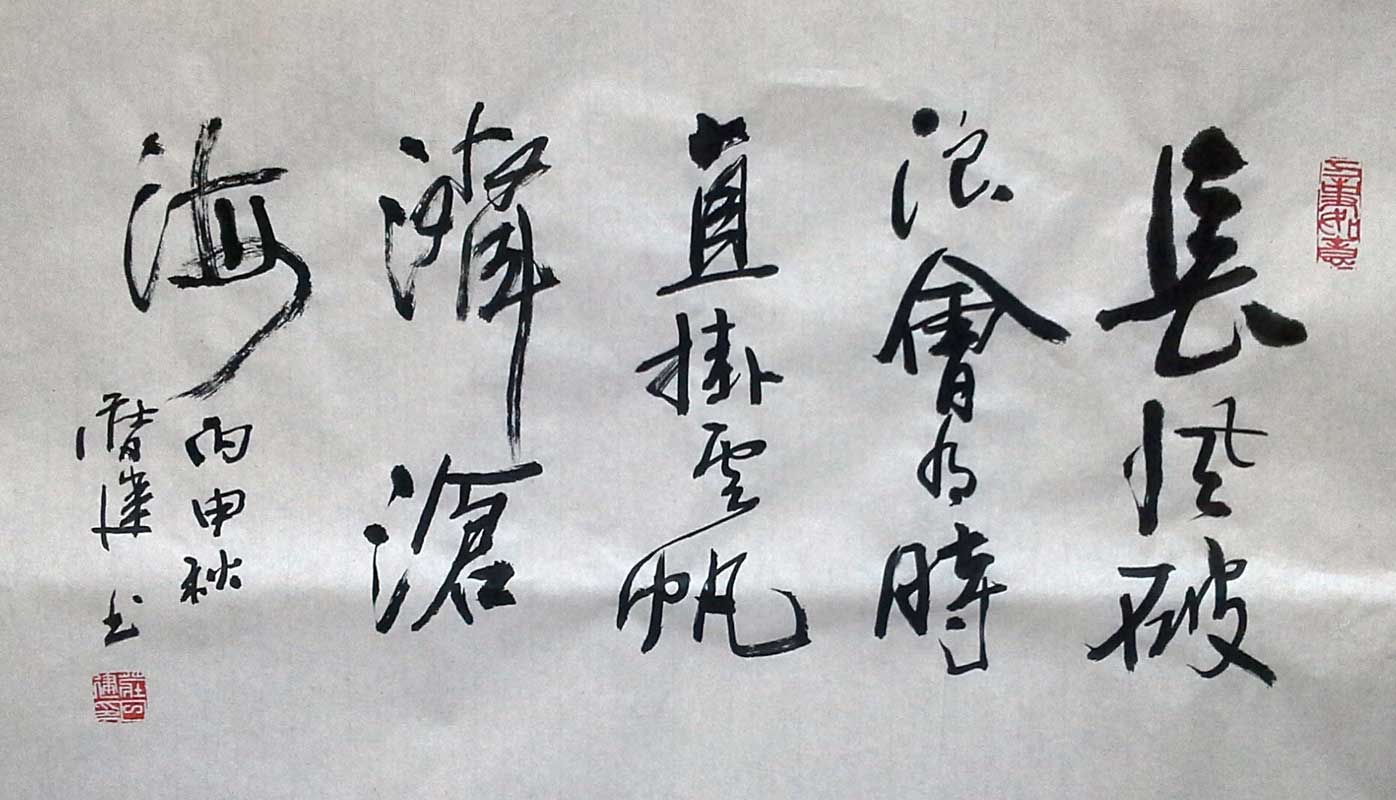 長風破
浪會有時
直掛雲帆
濟滄
海
丙申秋
書